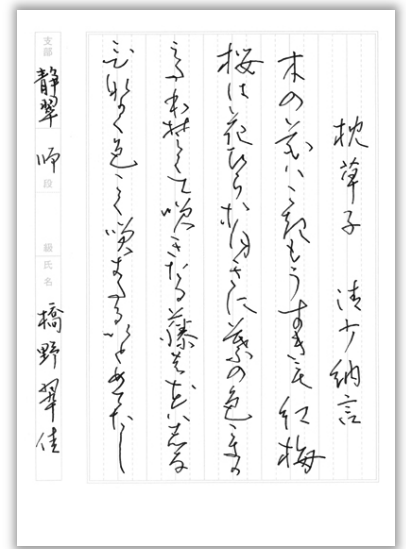 枕草子 清少納言
木の花はこきもうすきも紅梅
桜は花びらおほきに葉の色こき
枝ほそくて咲きたる藤の花は
しなひながく色こく咲きたるいとめでたし
支部 静翠 師 段 級 氏名 橋野翠佳